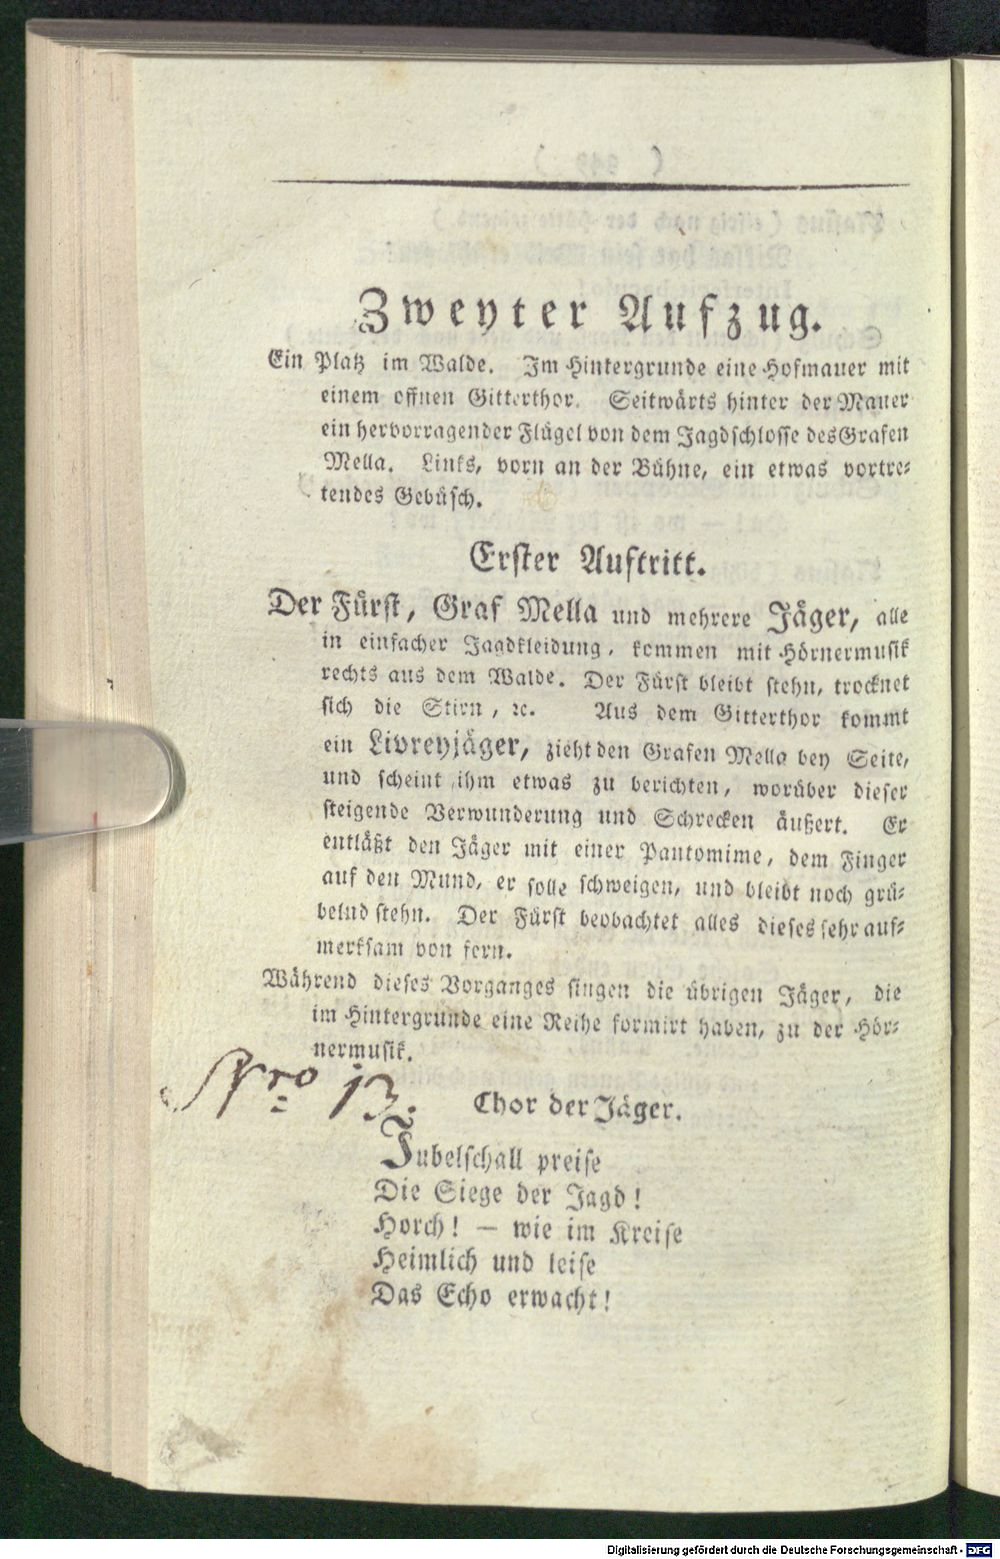 Zweyter Aufzug.
Ein Platz im Walde. Im Hintergrunde eine Hofmauer mit
einem offnen Gitterthor. Seitwärts hinter der Mauer
ein hervorragender Flügel von dem Jagdschlosse des Grafen
Mella. Links, vorn an der Bühne, ein etwas vortre-
tendes Gebüsch.
Erster Auftritt.
Der Fürst, Graf Mella und mehrere Jäger, alle
in einfacher Jagdkleidung, kommen mit Hörnermusik
rechts aus dem Walde. Der Fürst bleibt stehn, trocknet
sich die Stirn, ꝛc. Aus dem Gitterthor kommt
ein Livreyjäger, zieht den Grafen Mella bey Seite,
und scheint ihm etwas zu berichten, worüber dieser
steigende Verwunderung und Schrecken äußert. Er
entläßt den Jäger mit einer Pantomime, dem Finger
auf den Mund, er solle schweigen, und bleibt noch grü-
belnd stehn. Der Fürst beobachtet alles dieses sehr auf-
merksam von fern.
Während dieses Vorganges singen die übrigen Jäger, die
im Hintergrunde eine Reihe formirt haben, zu der Hör-
nermusik.
Nro 13.
Chor der Jäger.
Jubelschall preise
Die Siege der Jagd!
Horch! — wie im Kreise
Heimlich und leise
Das Echo erwacht!
Digitalisierung gefördert durch die Deutsche Forschungsgemeinschaft - DFG